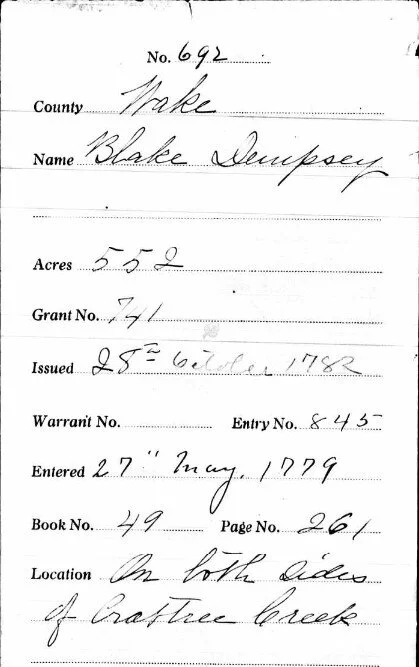 No. 692
County Wake
Name Blake Dempsey
Acres 552
Grant No. 741
Issued 28th October 1782
Warrant No.
Entry No. 845
Entered 27" May, 1779
Book No. 49 Page No. 261
Location On both sides
of Crabtree Creek